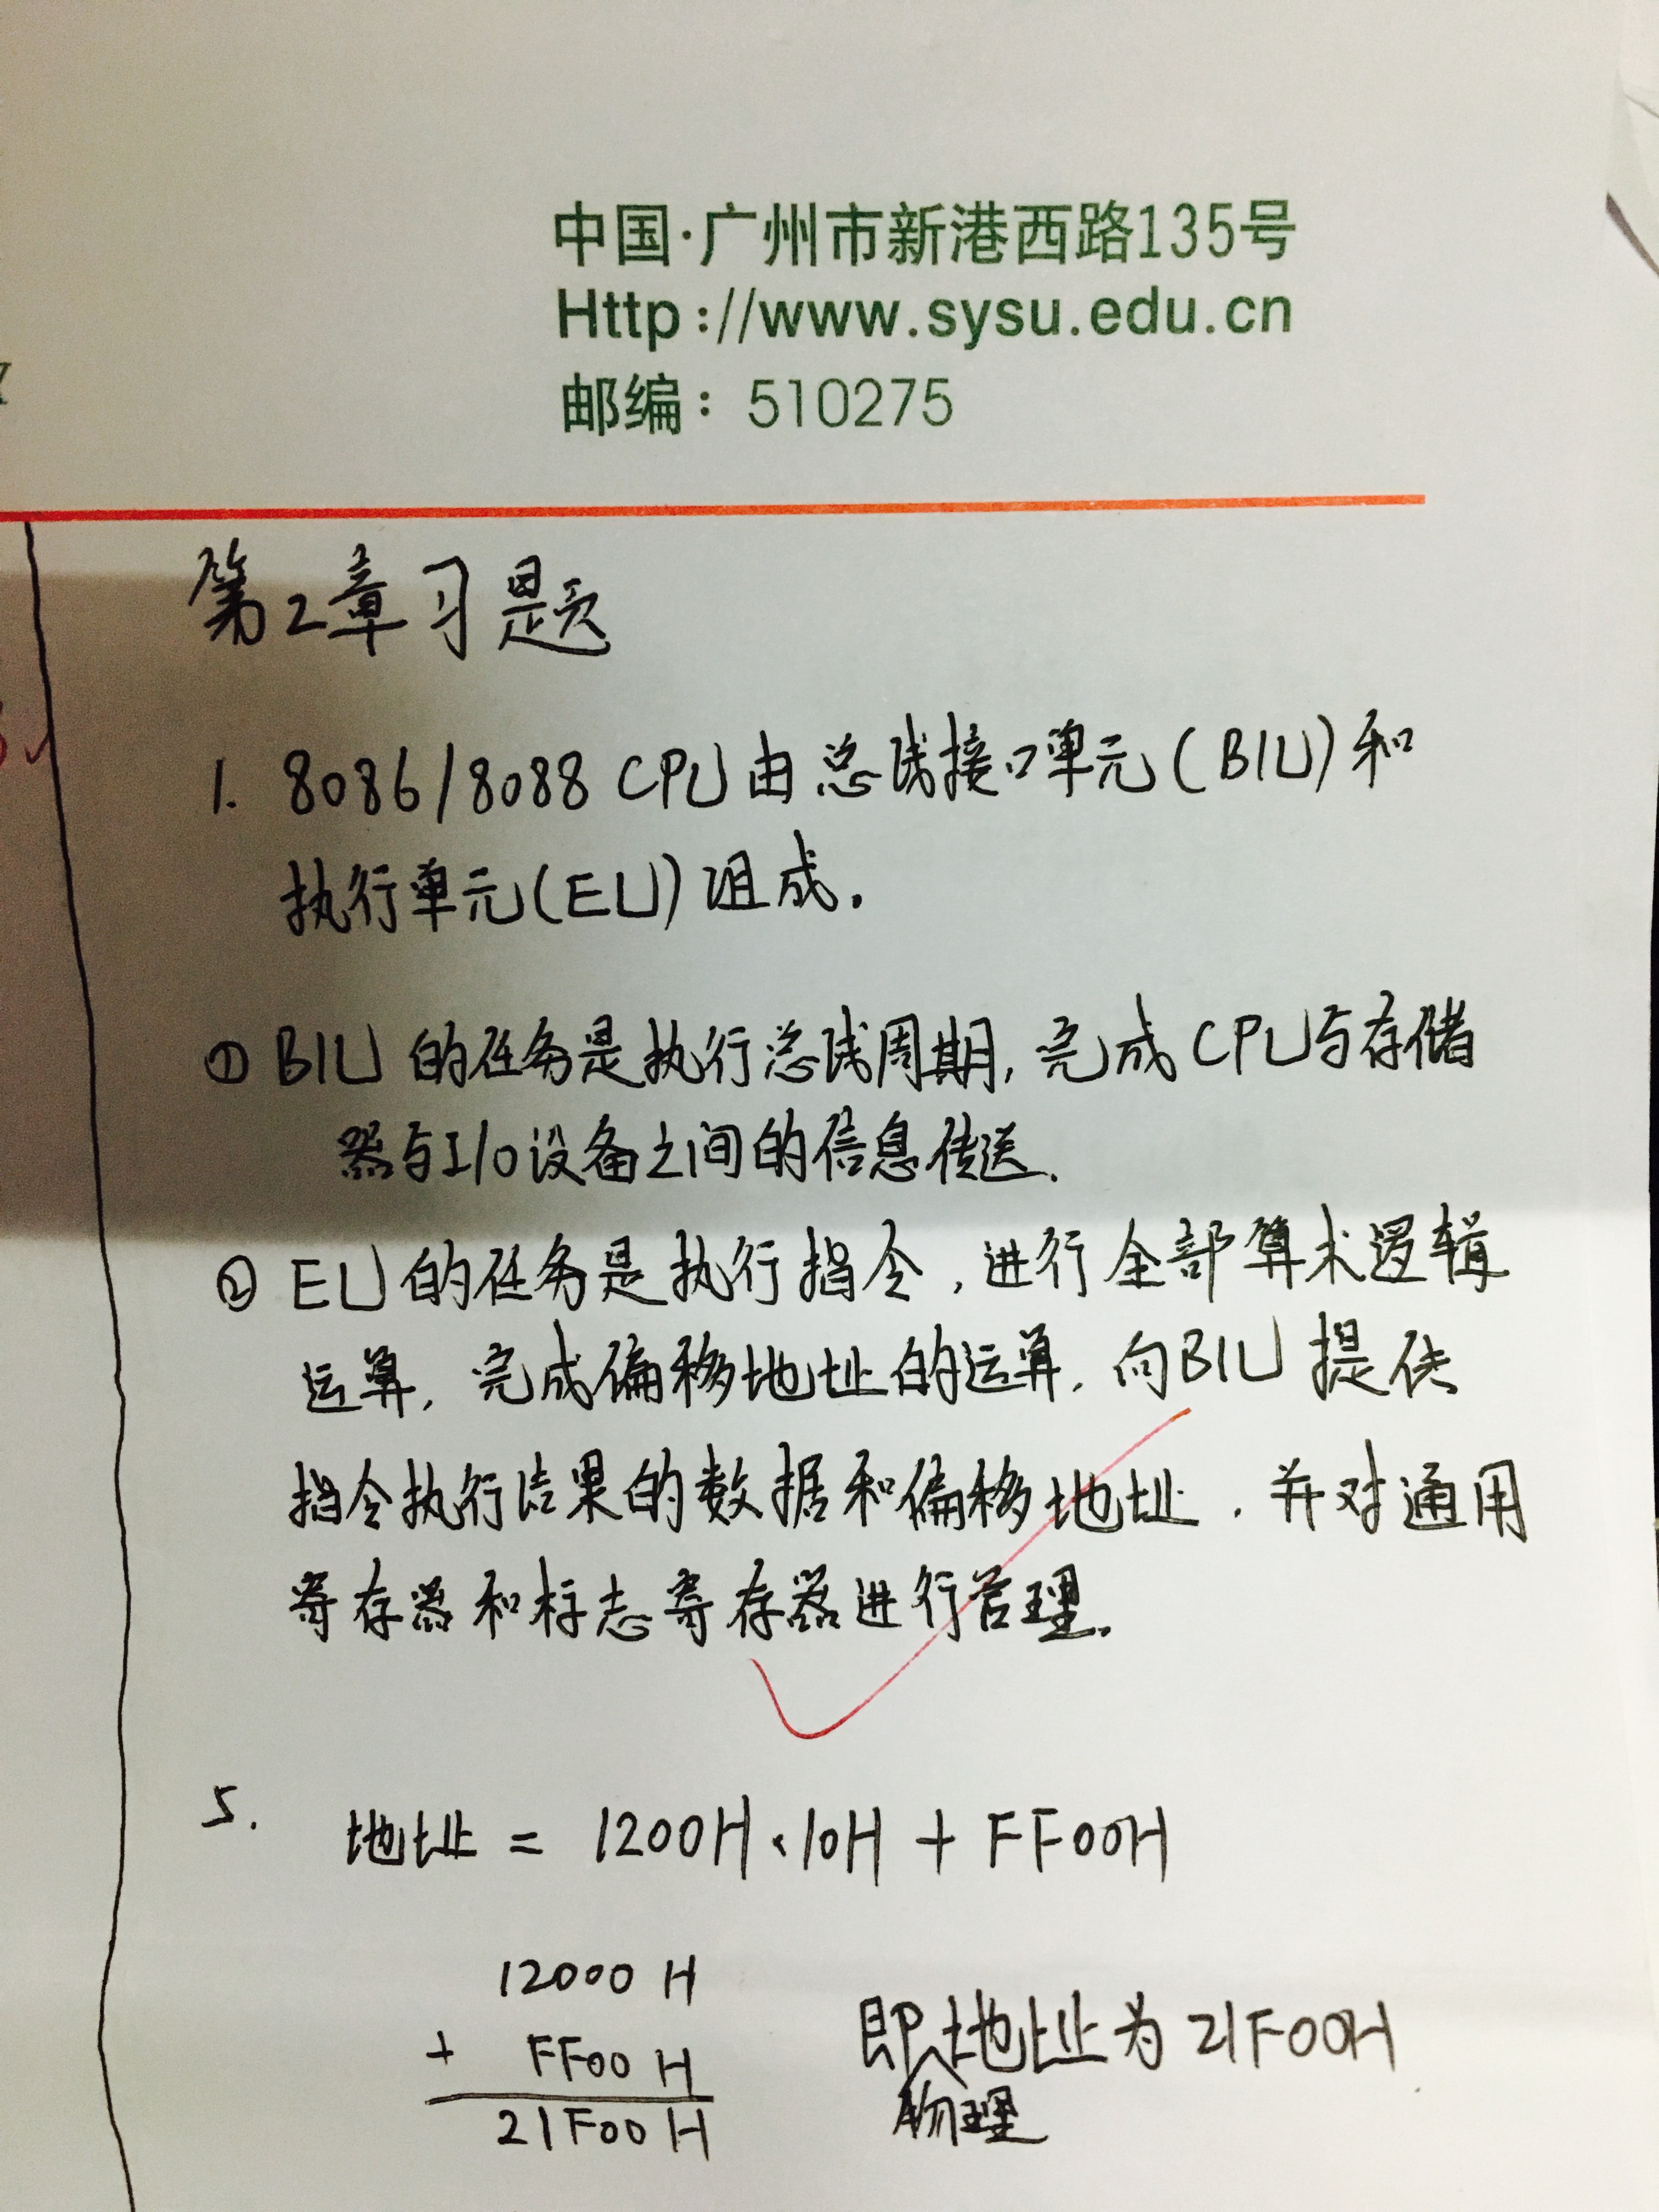 中国·广州市新港西路135号
Http://www.sysu.edu.cn
邮编：510275
第2章习题
1. 8086/8088 CPU由总线接口单元(BIU)和
执行单元(EU)组成.
① BIU的任务是执行总线周期,完成CPU与存储
器与I/O设备之间的信息传送.
② EU的任务是执行指令,进行全部算术逻辑
运算,完成偏移地址的运算,向BIU提供
指令执行结果的数据和偏移地址,并对通用
寄存器和标志寄存器进行管理.
5. 地址 = 1200H·10H + FF00H
12000 H
+ FF00 H
21F00 H
即物理地址为21F00H